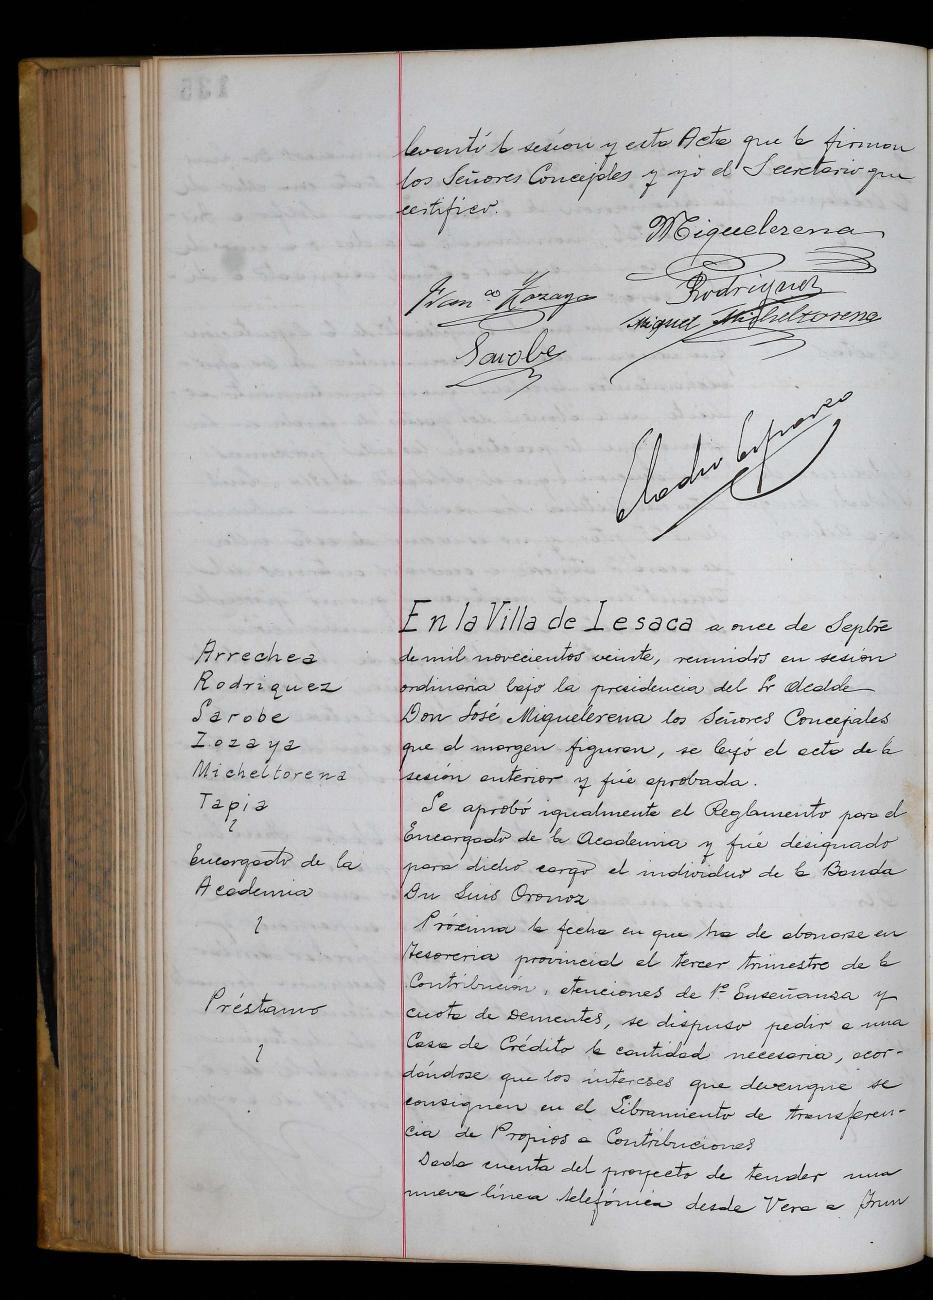 levantó la sesión y esta Acta que la firman
los Señores Concejales y yo el Secretario que
certifico.
Miguelerena
Fran.co Zozaya
Rodriguez
Miguel Micheltorena
Sarobe
Eladio Esparza
En la Villa de Lesaca a once de Sepbre
de mil novecientos veinte, reunidos en sesión
ordinaria bajo la presidencia del Sr Alcalde
Don José Miguelerena los Señores Concejales
que al margen figuran, se leyó el acta de la
sesión anterior y fué aprobada.
Arrechea
Rodriguez
Sarobe
Zozaya
Micheltorena
Tapia
Se aprobó igualmente el Reglamento para el
Encargado de la Academia y fué designado
para dicho cargo el individuo de la Banda
Dn Luis Oronoz
Encargado de la
Academia
Próxima la fecha en que ha de abonarse en
Tesoreria provincial el tercer trimestre de la
Contribución, atenciones de 1ª Enseñanza y
cuota de Dementes, se dispuso pedir a una
Casa de Crédito la cantidad necesaria, acor-
dándose que los intereses que devengue se
consignen en el Libramiento de transferen-
cia de Propios a Contribuciones
Préstamo
Dada cuenta del proyecto de tender una
nueva línea telefónica desde Vera a Irun